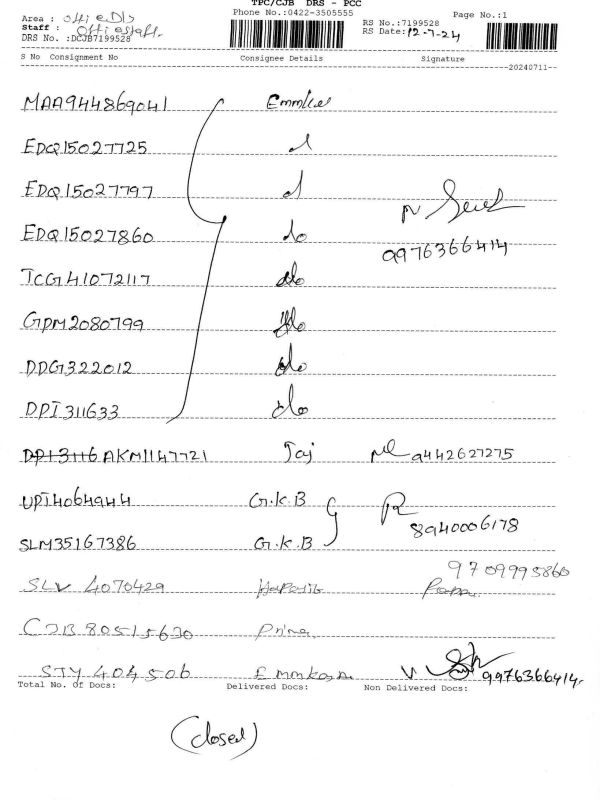 TPC/CJB DRS - PCC
Phone No.:0422-3505555 Page No.:1
Area :
Staff :
DRS No. :DCJB7199528
RS No.:7199528
RS Date: 12-7-24
S No Consignment No Consignee Details Signature
--20240711--
MAA944869041 Emmkel
EDQ15027725
EDQ15027797
EDQ15027860 do
9976366414
TCG41072117 do
GPM2080799 do
DDG322012 do
DPI311633 do
DPI3116 AKM1147721 Taj 9442627275
UPI4064944 G.K.B
8940006178
SLM35167386 G.K.B
9709995860
SLV 4070429
CJB 80515630
STY 404506 9976366414
Total No. Of Docs: Delivered Docs: Non Delivered Docs:
(closed)